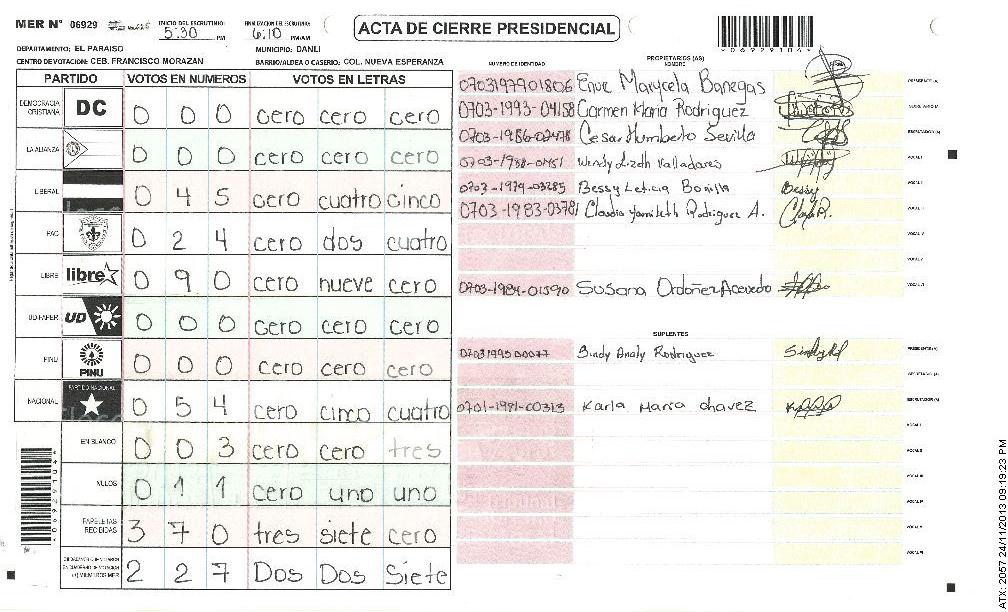 MER N° 06929
INICIO DEL ESCRUTINIO:
5:30 PM
FINALIZACION DEL ESCRUTINIO:
6:10 PM/AM
ACTA DE CIERRE PRESIDENCIAL
06929104
DEPARTAMENTO: EL PARAISO
MUNICIPIO: DANLI
CENTRO DE VOTACION: CEB. FRANCISCO MORAZAN
BARRIO/ALDEA O CASERIO: COL. NUEVA ESPERANZA
PARTIDO VOTOS EN NUMEROS VOTOS EN LETRAS
DEMOCRACIA CRISTIANA DC 0 0 0 cero cero cero
LA ALIANZA 0 0 0 cero cero cero
LIBERAL 0 4 5 cero cuatro cinco
PAC 0 2 4 cero dos cuatro
LIBRE libre 0 9 0 cero nueve cero
UD-FAPER UD 0 0 0 cero cero cero
PINU PINU 0 0 0 cero cero cero
NACIONAL PARTIDO NACIONAL 0 5 4 cero cinco cuatro
EN BLANCO 0 0 3 cero cero tres
NULOS 0 1 1 cero uno uno
PAPELETAS RECIBIDAS 3 7 0 tres siete cero
2 2 7 Dos Dos Siete
NUMERO DE IDENTIDAD
PROPIETARIOS (AS)
NOMBRE
0703197901806 Marycela Banegas PRESIDENTE (A)
0703-1993-04158 Carmen Maria Rodriguez SECRETARIO (A)
0703-1986-02478 Cesar Humberto Sevilla ESCRUTADOR (A)
Wendy Lizeth Valladares VOCAL I
0703-1979-03285 Bessy Leticia Bonilla Bessy VOCAL II
0703-1983-03781 Claudia Yamileth Rodriguez A.
VOCAL IV
VOCAL V
0703-1984-01590 Susana Ordoñez Acevedo VOCAL VI
SUPLENTES
0703199500077 Sindy Analy Rodriguez PRESIDENTE (A)
SECRETARIO (A)
0701-1981-00313 Karla Maria chavez ESCRUTADOR (A)
VOCAL I
VOCAL II
VOCAL III
VOCAL IV
VOCAL V
VOCAL VI
ATX: 2057 24/11/2013 09:19:23 PM